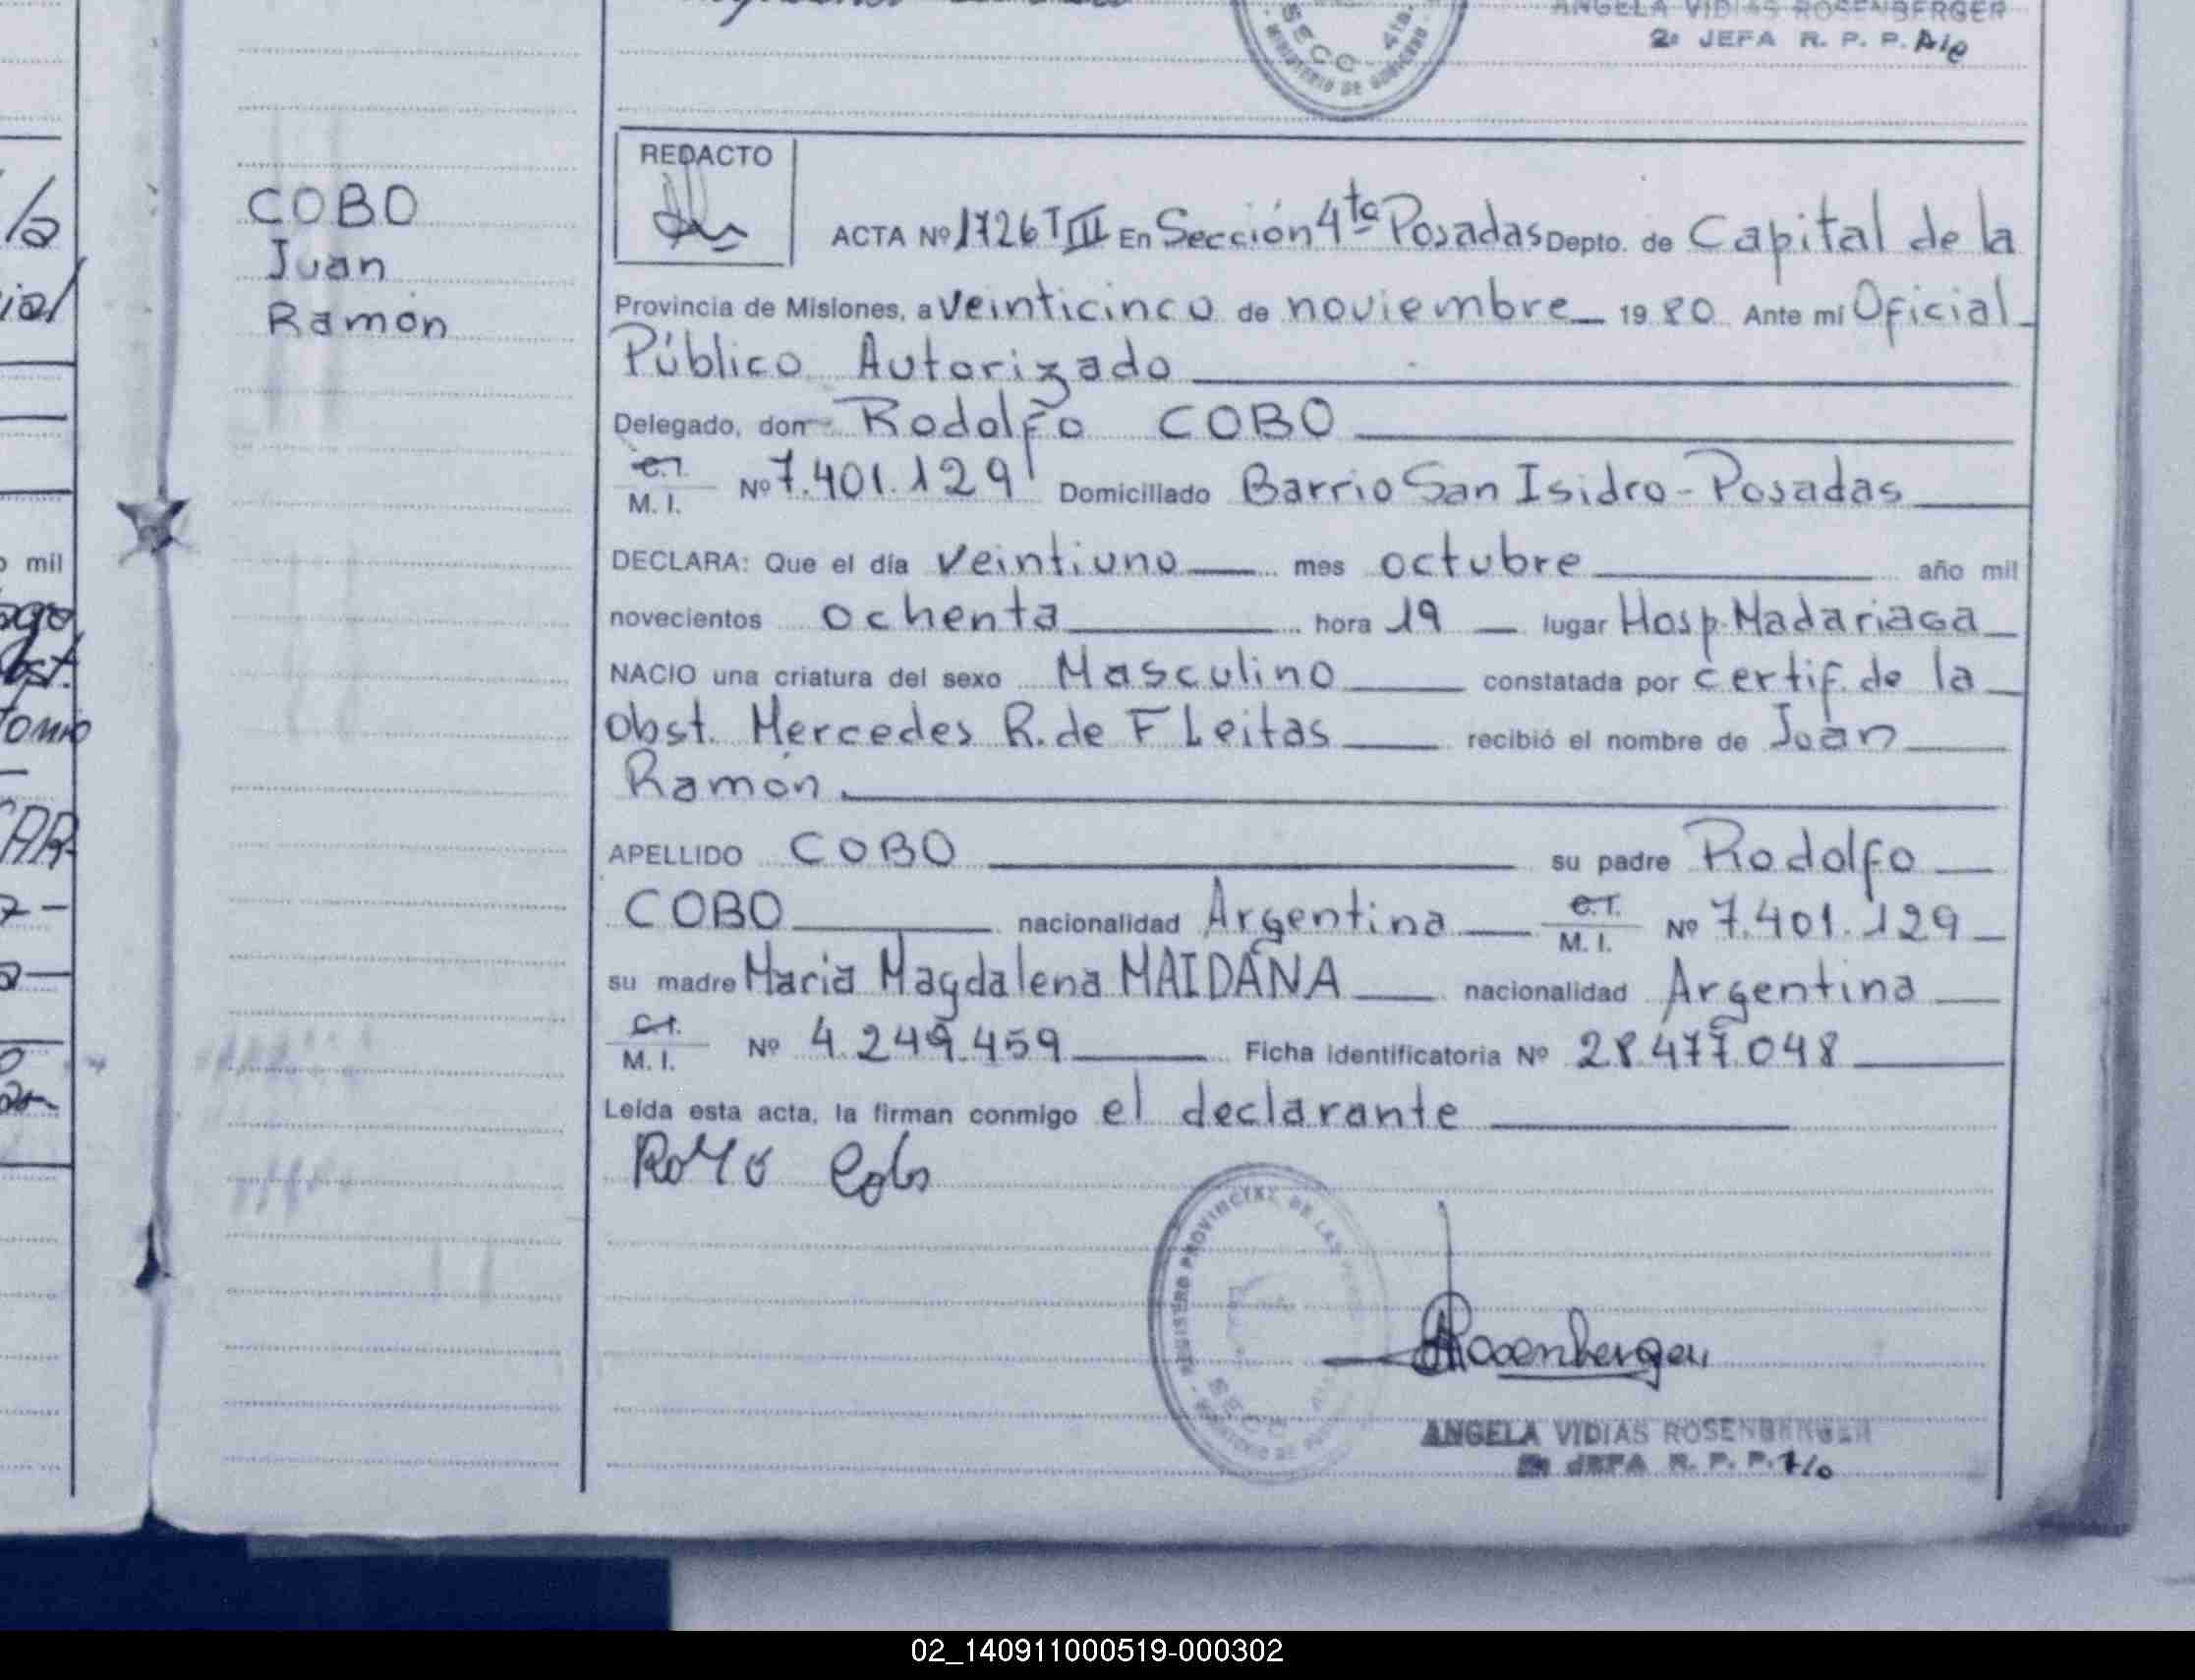 ANGELA VIDIAS ROSENBERGER
2º JEFA R. P. P.
SECC. 4ta.
MINISTERIO DE GOBIERNO
REDACTO
COBO
Juan
Ramón
ACTA Nº 1726 T III En Sección 4ta Posadas Depto. de Capital de la
Provincia de Misiones, a veinticinco de noviembre 1980 Ante mi Oficial
Público Autorizado
Delegado, don Rodolfo COBO
C.I.
M. I. Nº 7.401.129 Domiciliado Barrio San Isidro - Posadas
DECLARA: Que el día veintiuno mes octubre año mil
novecientos ochenta hora 19 lugar Hosp. Madariaga
NACIO una criatura del sexo Masculino constatada por certif. de la
obst. Mercedes R. de FLeitas recibió el nombre de Juan
Ramón
APELLIDO COBO su padre Rodolfo
COBO nacionalidad Argentina C.I. M. I. Nº 7.401.129
su madre Maria Magdalena MAIDANA nacionalidad Argentina
C.I.
M. I. Nº 4.249.459 Ficha identificatoria Nº 28.477.048
Leída esta acta, la firman conmigo el declarante
REGISTRO PROVINCIAL DE LAS
SECC.
Rosenberger
ANGELA VIDIAS ROSENBERGER
2º JEFA R. P. P.
mil
02_140911000519-000302